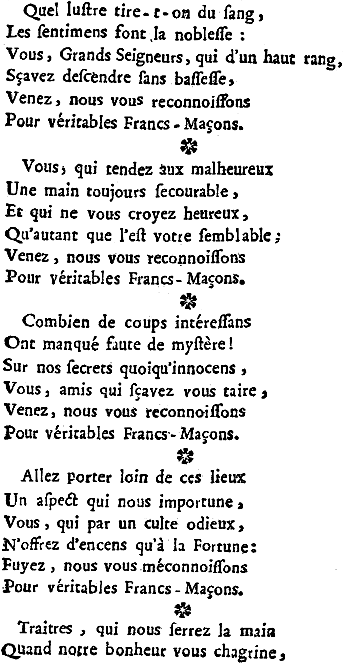 Quel luſtre tire-t-on du ſang,
Les ſentimens font la nobleſſe :
Vous, Grands Seigneurs, qui d'un haut rang,
Sçavez deſcendre ſans baſſeſſe,
Venez, nous vous reconnoiſſons
Pour véritables Francs-Maçons.
Vous, qui tendez aux malheureux
Une main toujours ſecourable,
Et qui ne vous croyez heureux,
Qu'autant que l'eſt votre ſemblable;
Venez, nous vous reconnoiſſons
Pour véritables Francs-Maçons.
Combien de coups intéreſſans
Ont manqué faute de myſtère!
Sur nos ſecrets quoiqu'innocens,
Vous, amis qui ſçavez vous taire,
Venez, nous vous reconnoiſſons
Pour véritables Francs-Maçons.
Allez porter loin de ces lieux
Un aſpect qui nous importune,
Vous, qui par un culte odieux,
N'offrez d'encens qu'à la Fortune:
Fuyez, nous vous méconnoiſſons
Pour véritables Francs-Maçons.
Traitres, qui nous ſerrez la main
Quand notre bonheur vous chagrine,